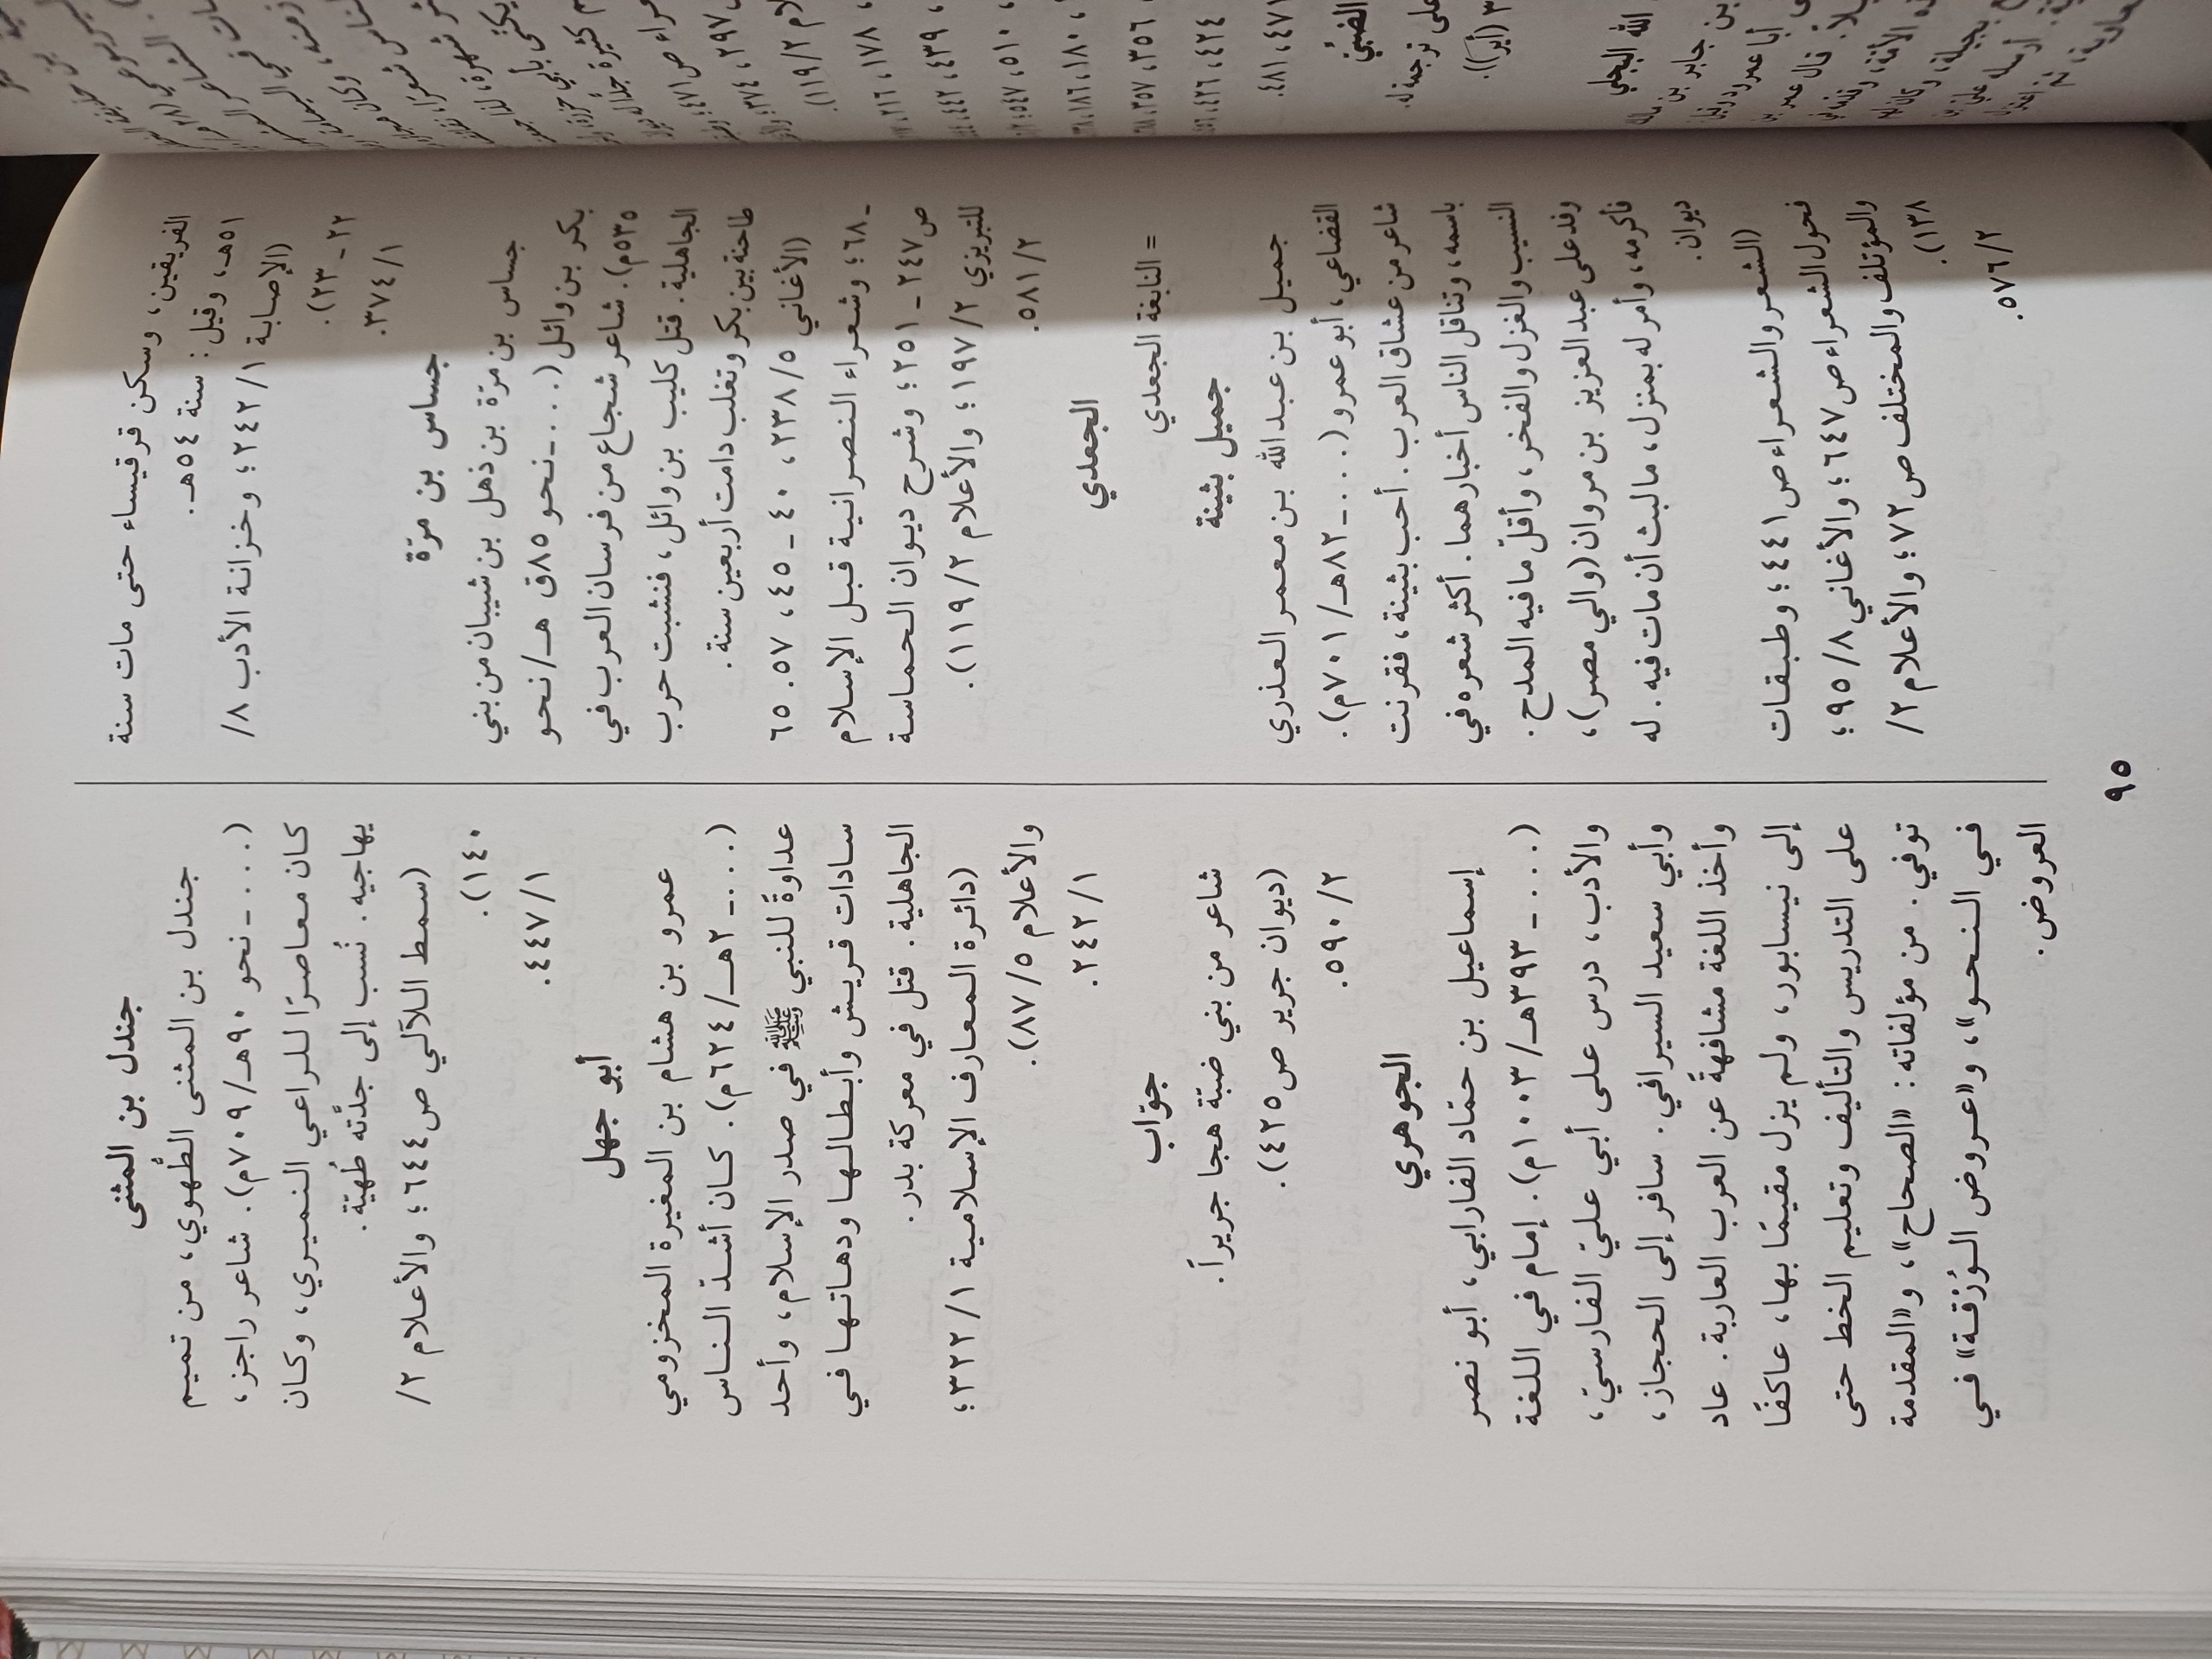 الفريقين، وسكن قرقيساء حتى مات سنة
٥١هـ، وقيل: سنة ٥٤هـ.
(الإصابة ٢٤٢/١؛ وخزانة الأدب ٨/
٢٢ - ٢٣).
٣٧٤/١.
جساس بن مرّة
جساس بن مرّة بن ذهل بن شيبان من بني
بكر بن وائل (... - نحو ٨٥ق هـ/ نحو
٥٣٥م). شاعر شجاع من فرسان العرب في
الجاهلية. قتل كليب بن وائل، فنشبت حرب
طاحنة بين بكر وتغلب دامت أربعين سنة.
(الأغاني ٢٣٨/٥، ٤٠ - ٤٥، ٥٧. ٦٥
- ٦٨؛ وشعراء النصرانية قبل الإسلام
ص٢٤٧ - ٢٥١؛ وشرح ديوان الحماسة
للتبريزي ١٩٧/٢؛ والأعلام ١١٩/٢).
٥٨١/٢.
الجعدي
= النابغة الجعدي
جميل بثينة
جميل بن عبد الله بن معمر العذري
القضاعي، أبو عمرو (... - ٨٢هـ/ ٧٠١م).
شاعر من عشاق العرب. أحب بثينة، فقرنت
باسمه، وتناقل الناس أخبارهما. أكثر شعره في
النسيب والغزل والفخر، وأقلّ ما فيه المدح.
وفد على عبد العزيز بن مروان (والي مصر)،
فأكرمه، وأمر له بمنزل، ما لبث أن مات فيه. له
ديوان.
(الشعر والشعراء ص٤٤١؛ وطبقات
فحول الشعراء ص٦٤٧؛ والأغاني ٩٥/٨؛
والمؤتلف والمختلف ص٧٢؛ والأعلام ٢/
١٣٨).
٥٧٦/٢.
جندل بن المثنى
جندل بن المثنى الطُّهوي، من تميم
(... - نحو ٩٠هـ/ ٧٠٩م). شاعر راجز،
كان معاصرًا للراعي النميري، وكان
يهاجيه. نُسب إلى جدَّته طُهيّة.
(سمط اللآلي ص٦٤٤؛ والأعلام ٢/
١٤٠).
٤٤٧/١.
أبو جهل
عمرو بن هشام بن المغيرة المخزومي
(... - ٢هـ/ ٦٢٤م). كان أشدّ الناس
عداوةً للنبي ﷺ في صدر الإسلام، وأحد
سادات قريش وأبطالها ودهاتها في
الجاهلية. قتل في معركة بدر.
(دائرة المعارف الإسلامية ٣٢٢/١؛
والأعلام ٨٧/٥).
٢٤٢/١.
جوّاب
شاعر من بني ضبّة هجا جريراً.
(ديوان جرير ص٤٢٥).
٥٩٠/٢.
الجوهري
إسماعيل بن حمّاد الفارابي، أبو نصر
(... - ٣٩٣هـ/ ١٠٠٣م). إمام في اللغة
والأدب، درس على أبي عليّ الفارسيّ،
وأبي سعيد السيرافي. سافر إلى الحجاز،
وأخذ اللغة مشافهةً عن العرب العاربة. عاد
إلى نيسابور، ولم يزل مقيمًا بها، عاكفًا
على التدريس والتأليف وتعليم الخط حتى
توفي. من مؤلفاته: «الصحاح»، و«المقدمة
في النحو»، و«عروض الوُرْقة» في
العروض.
٩٥